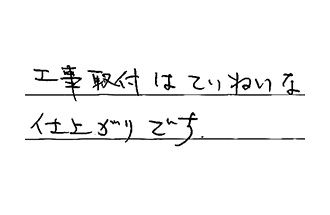 工事取付はていねいな
仕上がりです.